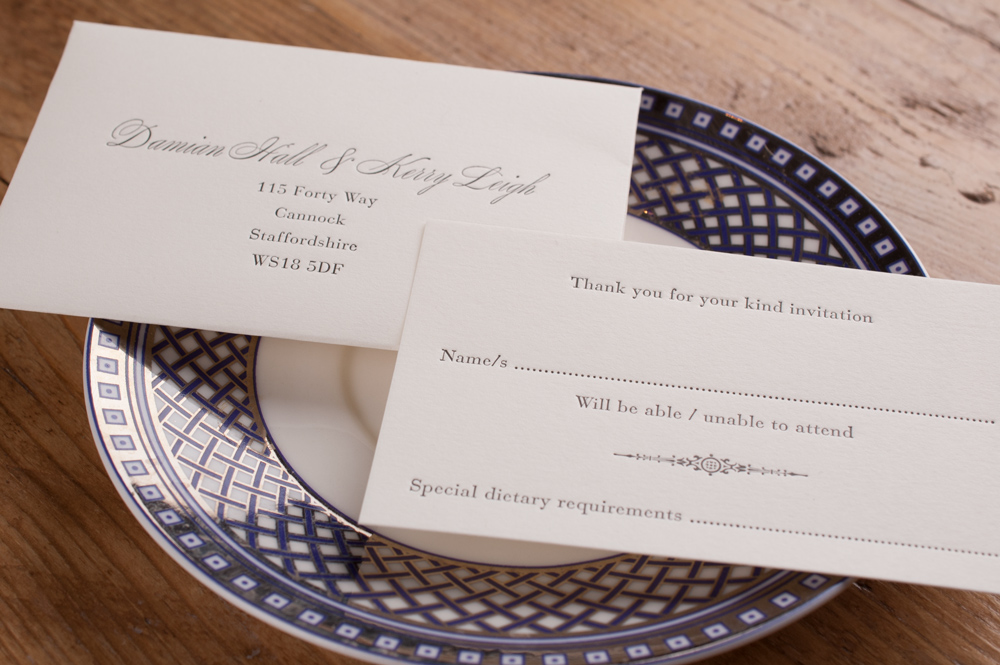 Damian Hall & Kerry Leigh
115 Forty Way
Cannock
Staffordshire
WS18 5DF
Thank you for your kind invitation
Name/s ............................................................
Will be able / unable to attend
Special dietary requirements ........................................